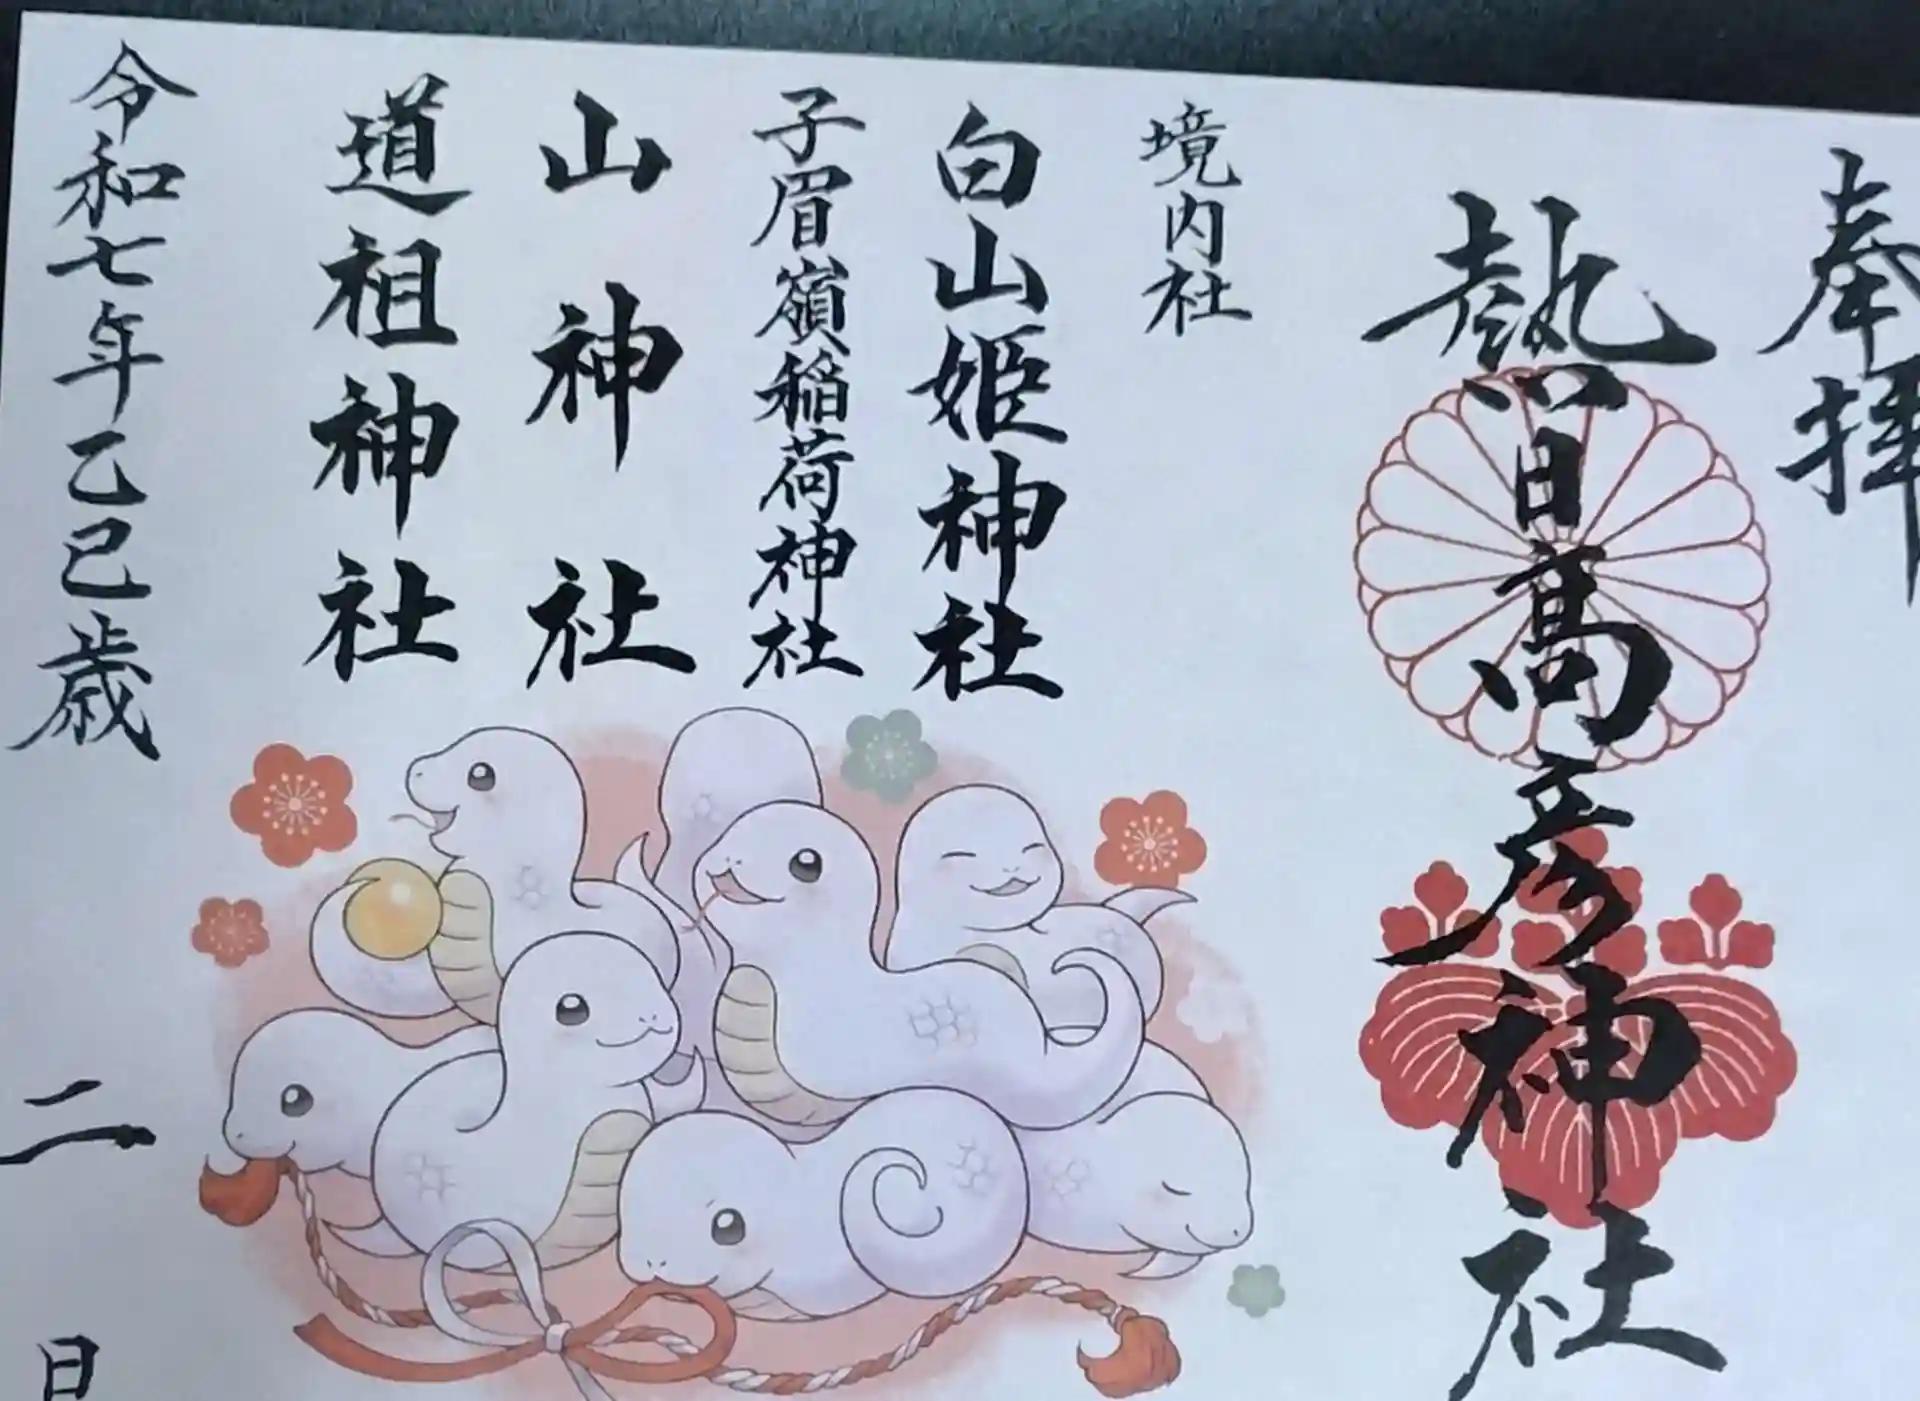 奉拝
熱日高彦神社
境内社
白山姫神社
子眉嶺稲荷神社
山神社
道祖神社
令和七年乙巳歳
二
日